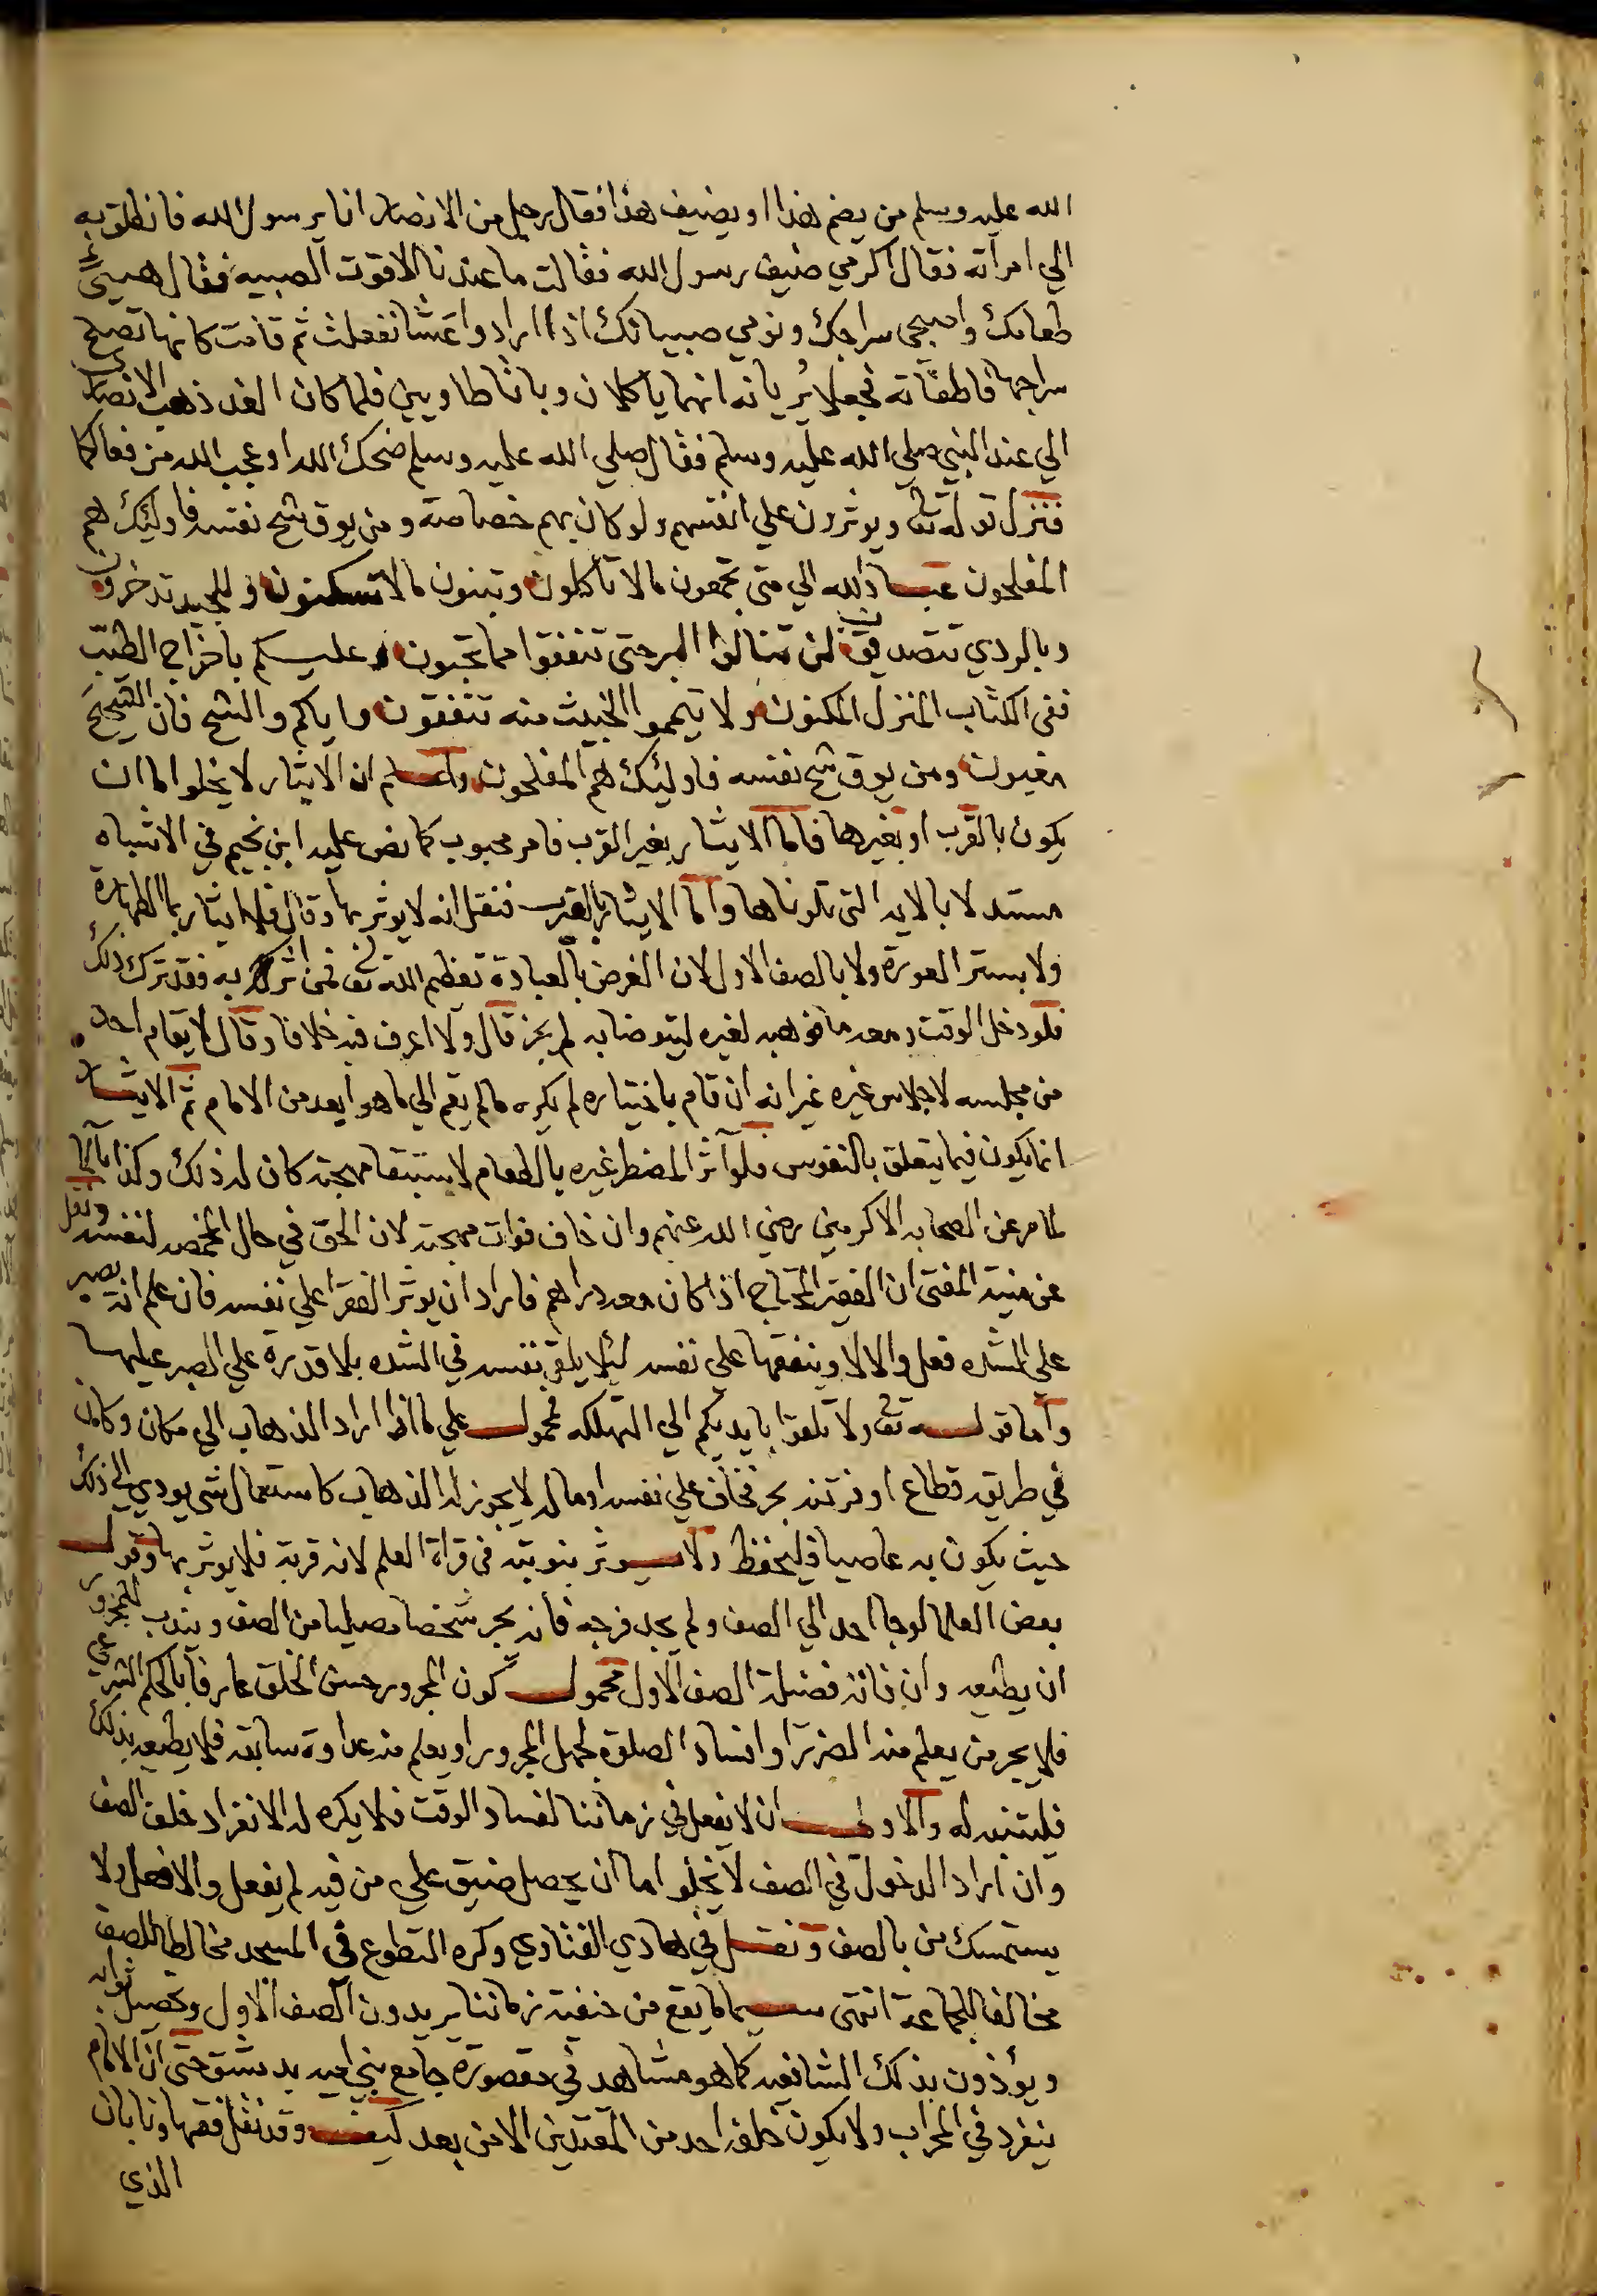 الله عليه وسلم من يضم هذا او يضيف هذا فقال رجل من الانصار انا يرسول الله فانطلق به
الي امراته فقال اكرمي ضيف رسول الله فقالت ما عندنا الا قوت الصبيه فقال هيىء
طعامك واصبحي سراجك ونومي صبيانك اذا ارادوا عشا ففعلت ثم قامت كانها تصلح
سراجها فاطفاته فجعلا يريانه انهما ياكلان وباتا طاويين فلما كان الغد ذهب الانصاري
الي عند النبي صلي الله عليه وسلم فقال صلي الله عليه وسلم ضحك الله او عجب الله من فعالكما
فنزل قوله تعا ويوثرون علي انفسهم ولو كان بهم خصاصة ومن يوق شح نفسه فاوليك هم
المفلحون عباد الله الي متي تجمعون مالا تاكلون وتبنون مالا تسكنون وللجيد تدخرون
وبالردي تتصدقون لن تنالوا البر حتى تنفقوا مما تحبون وعليكم باخراج الطيب
ففي الكتاب المنزل المكنون ولا تيمموا الخبيث منه تنفقون واياكم والشح فان الشحيح
مغبون ومن يوق شح نفسه فاولئك هم المفلحون واعلم ان الايثار لا يخلوا اما ان
يكون بالقرب او بغيرها فاما الايثار بغير القرب فامر محبوب كما نص عليه ابن نجيم في الاشباه
مستدلا بالايه التي تلوناها واما الايثار بالقرب فنقل انه لا يوثر بها وقال فلا ايثار بما الطهارة
ولا بستر العورة ولا بالصف الاول لان الغرض بالعبادة تعظيم الله تعا فمن اثر به فقد ترك ذلك
فلو دخل الوقت ومعه ما فوهبه لغيره ليتوضا به لم يجز قال ولا اعرف فيه خلافا وقال لا يقام احد
من مجلسه لاجلاس غيره غير انه ان قام باختياره لم يكره مالم يقم الي ما هو ابعد من الامام ثم الايثار
انما يكون فيما يتعلق بالنفوس فلو آثر المضطر غيره بالطعام لاستبقا مهجته كان له ذلك وكذا بالما
لما مر عن الصحابه الاكرمين رضي الله عنهم وان خاف فوات مهجته لان الحق في حال المخمصه لنفسه ونقل
عن منية المفتي ان الفقير المحتاج اذا كان معه دراهم فاراد ان يوثر الفقرا علي نفسه فان علم انه يصبر
علي الشده فعل والا لا وينفقها علي نفسه ليلا يلقي نفسه في الشده بلا قدرة علي الصبر عليها
واما قوله تعا ولا تلقوا بايديكم الي التهلكه فمحمول علي ما اذا اراد الذهاب الي مكان وكان
في طريقه قطاع او فرتنة بحر فخاف علي نفسه او ماله لا يجوز له الذهاب كاستعمال شي يودي الي ذلك
حيث يكون به عاصيا فليحفظ ولا يوثر بنوبته في قراة العلم لانه قربة فلا يوثر بها وقول
بعض العلما لو جا احد الي الصف ولم يجد فرجه فانه يجر شخصا مصليا من الصف ويندب للمجرور
ان يطيعه وان فاته فضيلة الصف الاول محمول كون المجرور حسن الخلق عارفا بالحكم الشرعي
فلا يجر من يعلم منه الضرر او افساد الصلوة لجهل المجرور او يعلم منه عداوة سابقه فلا يطيعه بذلك
فليتنبه له والاولي ان لا يفعل في زماننا لفساد الوقت فلا يكره له الانفراد خلف الصف
وان اراد الدخول في الصف لا يخلوا اما ان يحصل ضيق علي من فيه لم يفعل والا فعل ولا
يستمسك من بالصف ونقل في هادي الفتاوي وكره التطوع في المسجد مخالطا للصف
مخالفا للجماعة انتهى سيما ما يقع من حنفية زماننا يريدون الصف الاول وتحصيل ثوابه
ويؤذون بذلك الشافعيه كما هو مشاهد في مقصورة جامع بني اميه بدمشق حتى ان الامام
ينفرد في المحراب ولا يكون خلفه احد من المقتدين الا من بعد كيف وقد نقل فقهاونا بان
الذي